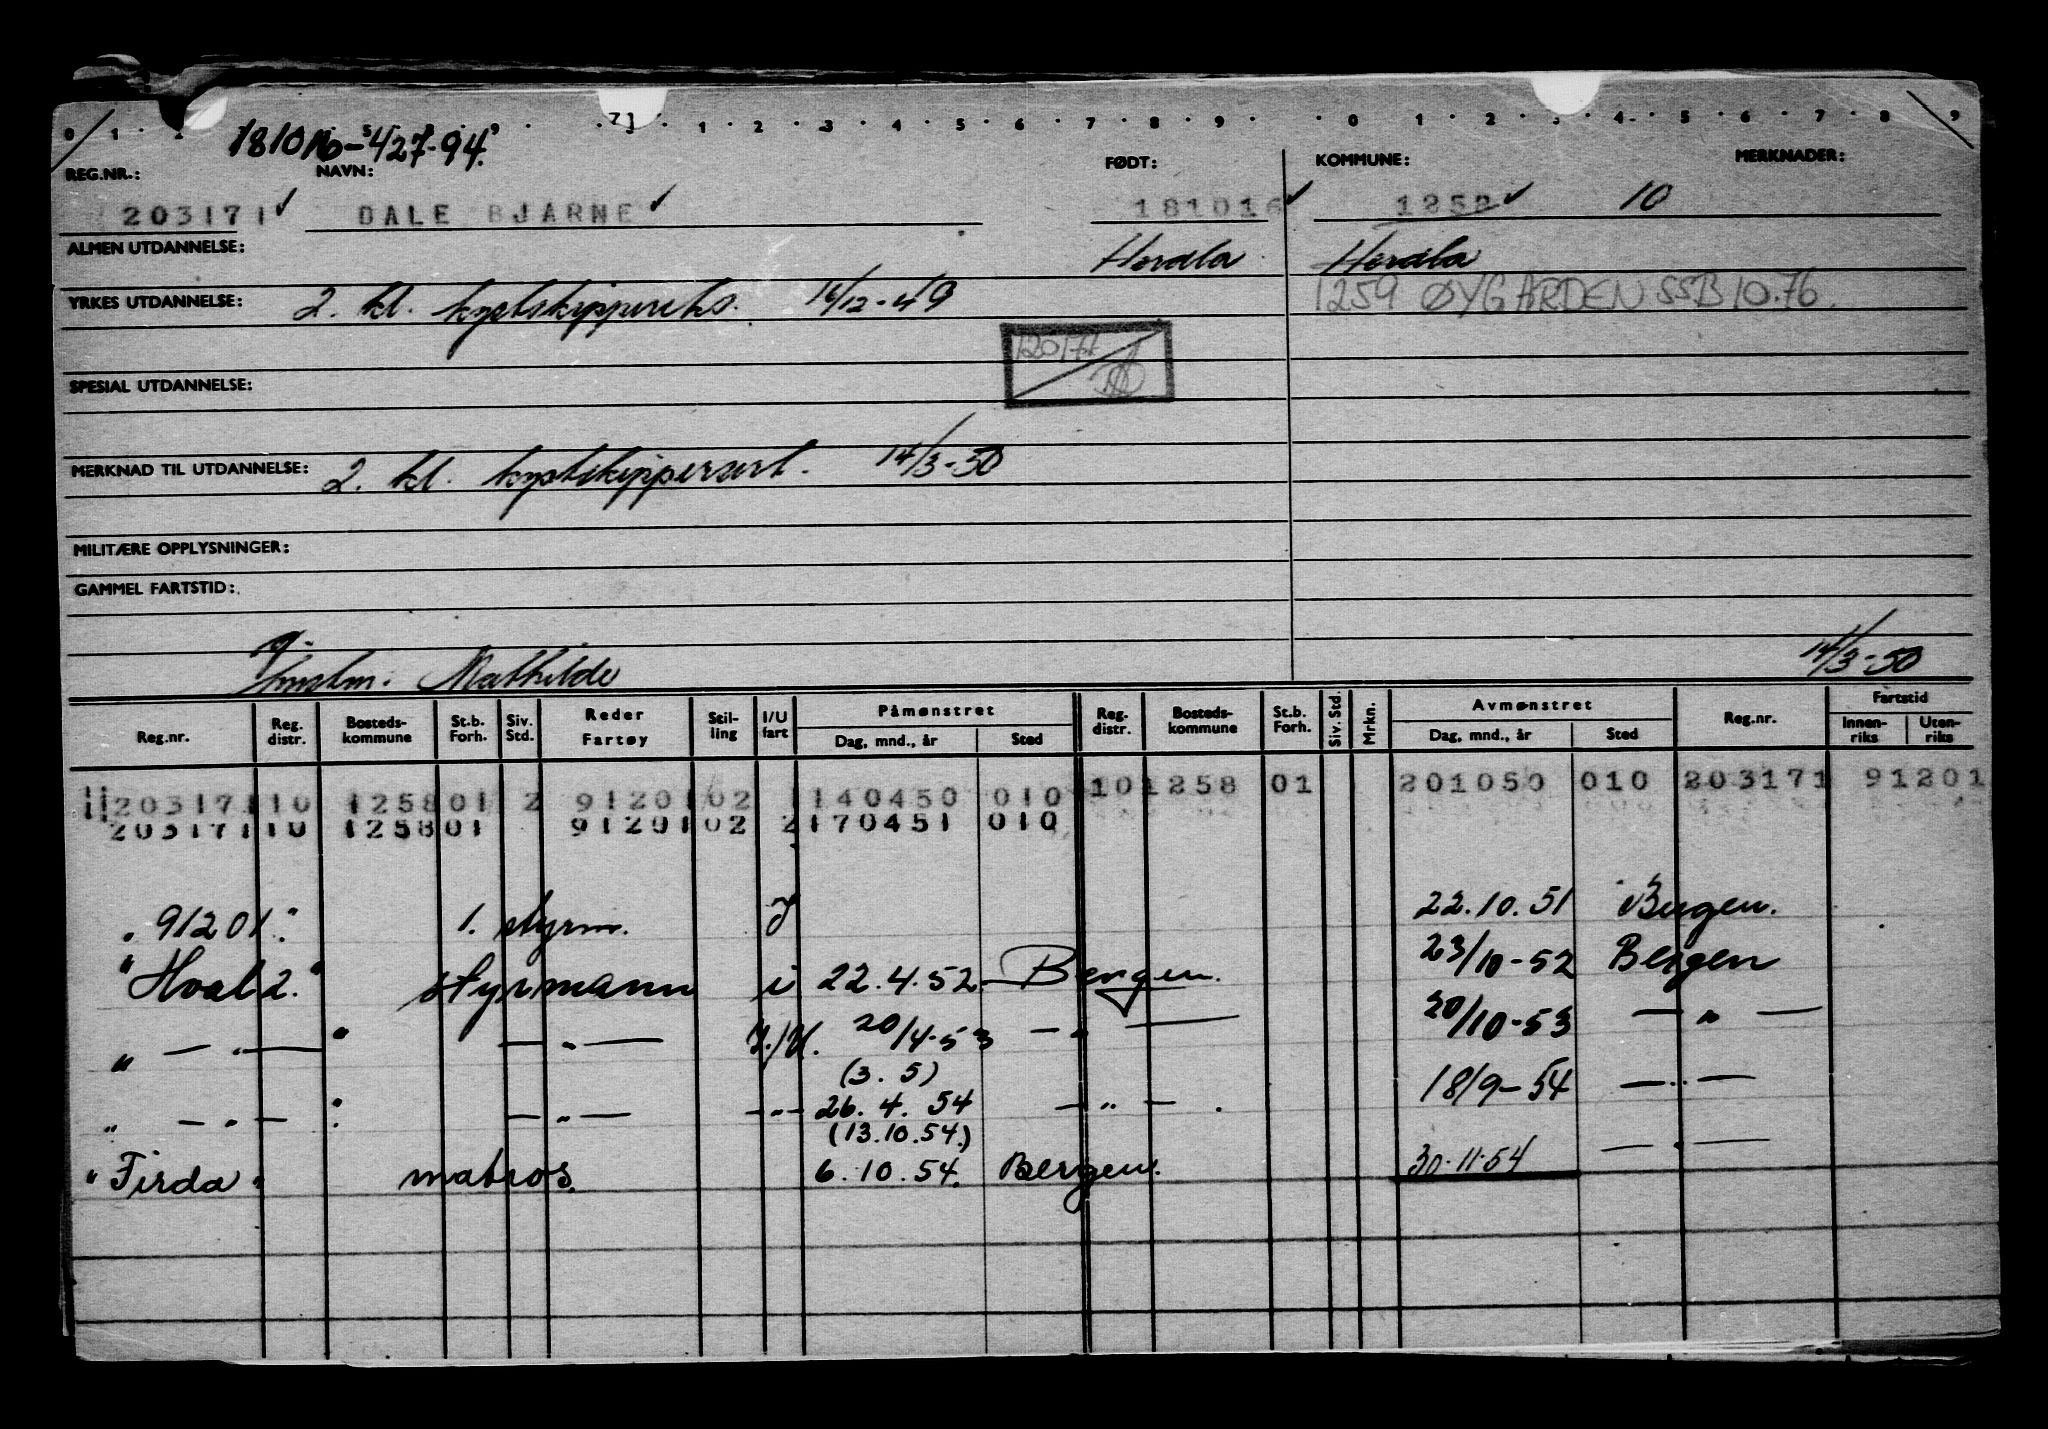 0 1 2 71 1 2 3 4 5 6 7 8 9 0 1 2 3 4 5 6 7 8 9
181016-427.94.
REG.NR.: NAVN: FØDT: KOMMUNE: MERKNADER:
203171 DALE BJARNE 181016 1258 10
ALMEN UTDANNELSE: Herdla Herdla
YRKES UTDANNELSE: 2. kl. kystskippereks. 16/12-49 1259 ØYGARDEN SSB 10.76.
SPESIAL UTDANNELSE:
MERKNAD TIL UTDANNELSE: 2. kl. kystskippersert. 14/3-50
MILITÆRE OPPLYSNINGER:
GAMMEL FARTSTID:
Mathilde 14/3-50
Reg.nr. Reg. distr. Bosteds- kommune St.b. Forh. Siv. Std. Reder Fartøy Stil- ling I/U fart Påmønstret Dag, mnd., år Sted Reg. distr. Bosteds- kommune St.b. Forh. Siv. Std. Mrkn. Avmønstret Dag, mnd., år Sted Reg.nr. Fartstid Innen- riks Uten- riks
203171 10 1258 01 2 91201 02 1 140450 010 10 1258 01 201050 010 203171 91201
203171 10 1258 01 91201 02 2 170451 010
"91201." 1. styrm. I 22.10.51 Bergen.
"Hval 2." styrmann i 22.4.52 - Bergen. 23/10-52 Bergen
" — " — " — " — I./U. 20/4-53 — " — 20/10-53 — " —
(3.5)
" — " — " — " — — " — 26.4.54 — " — . 18/9-54 — " —
(13.10.54.)
"Firda" matros. 6.10.54. Bergen. 30.11.54 — " —